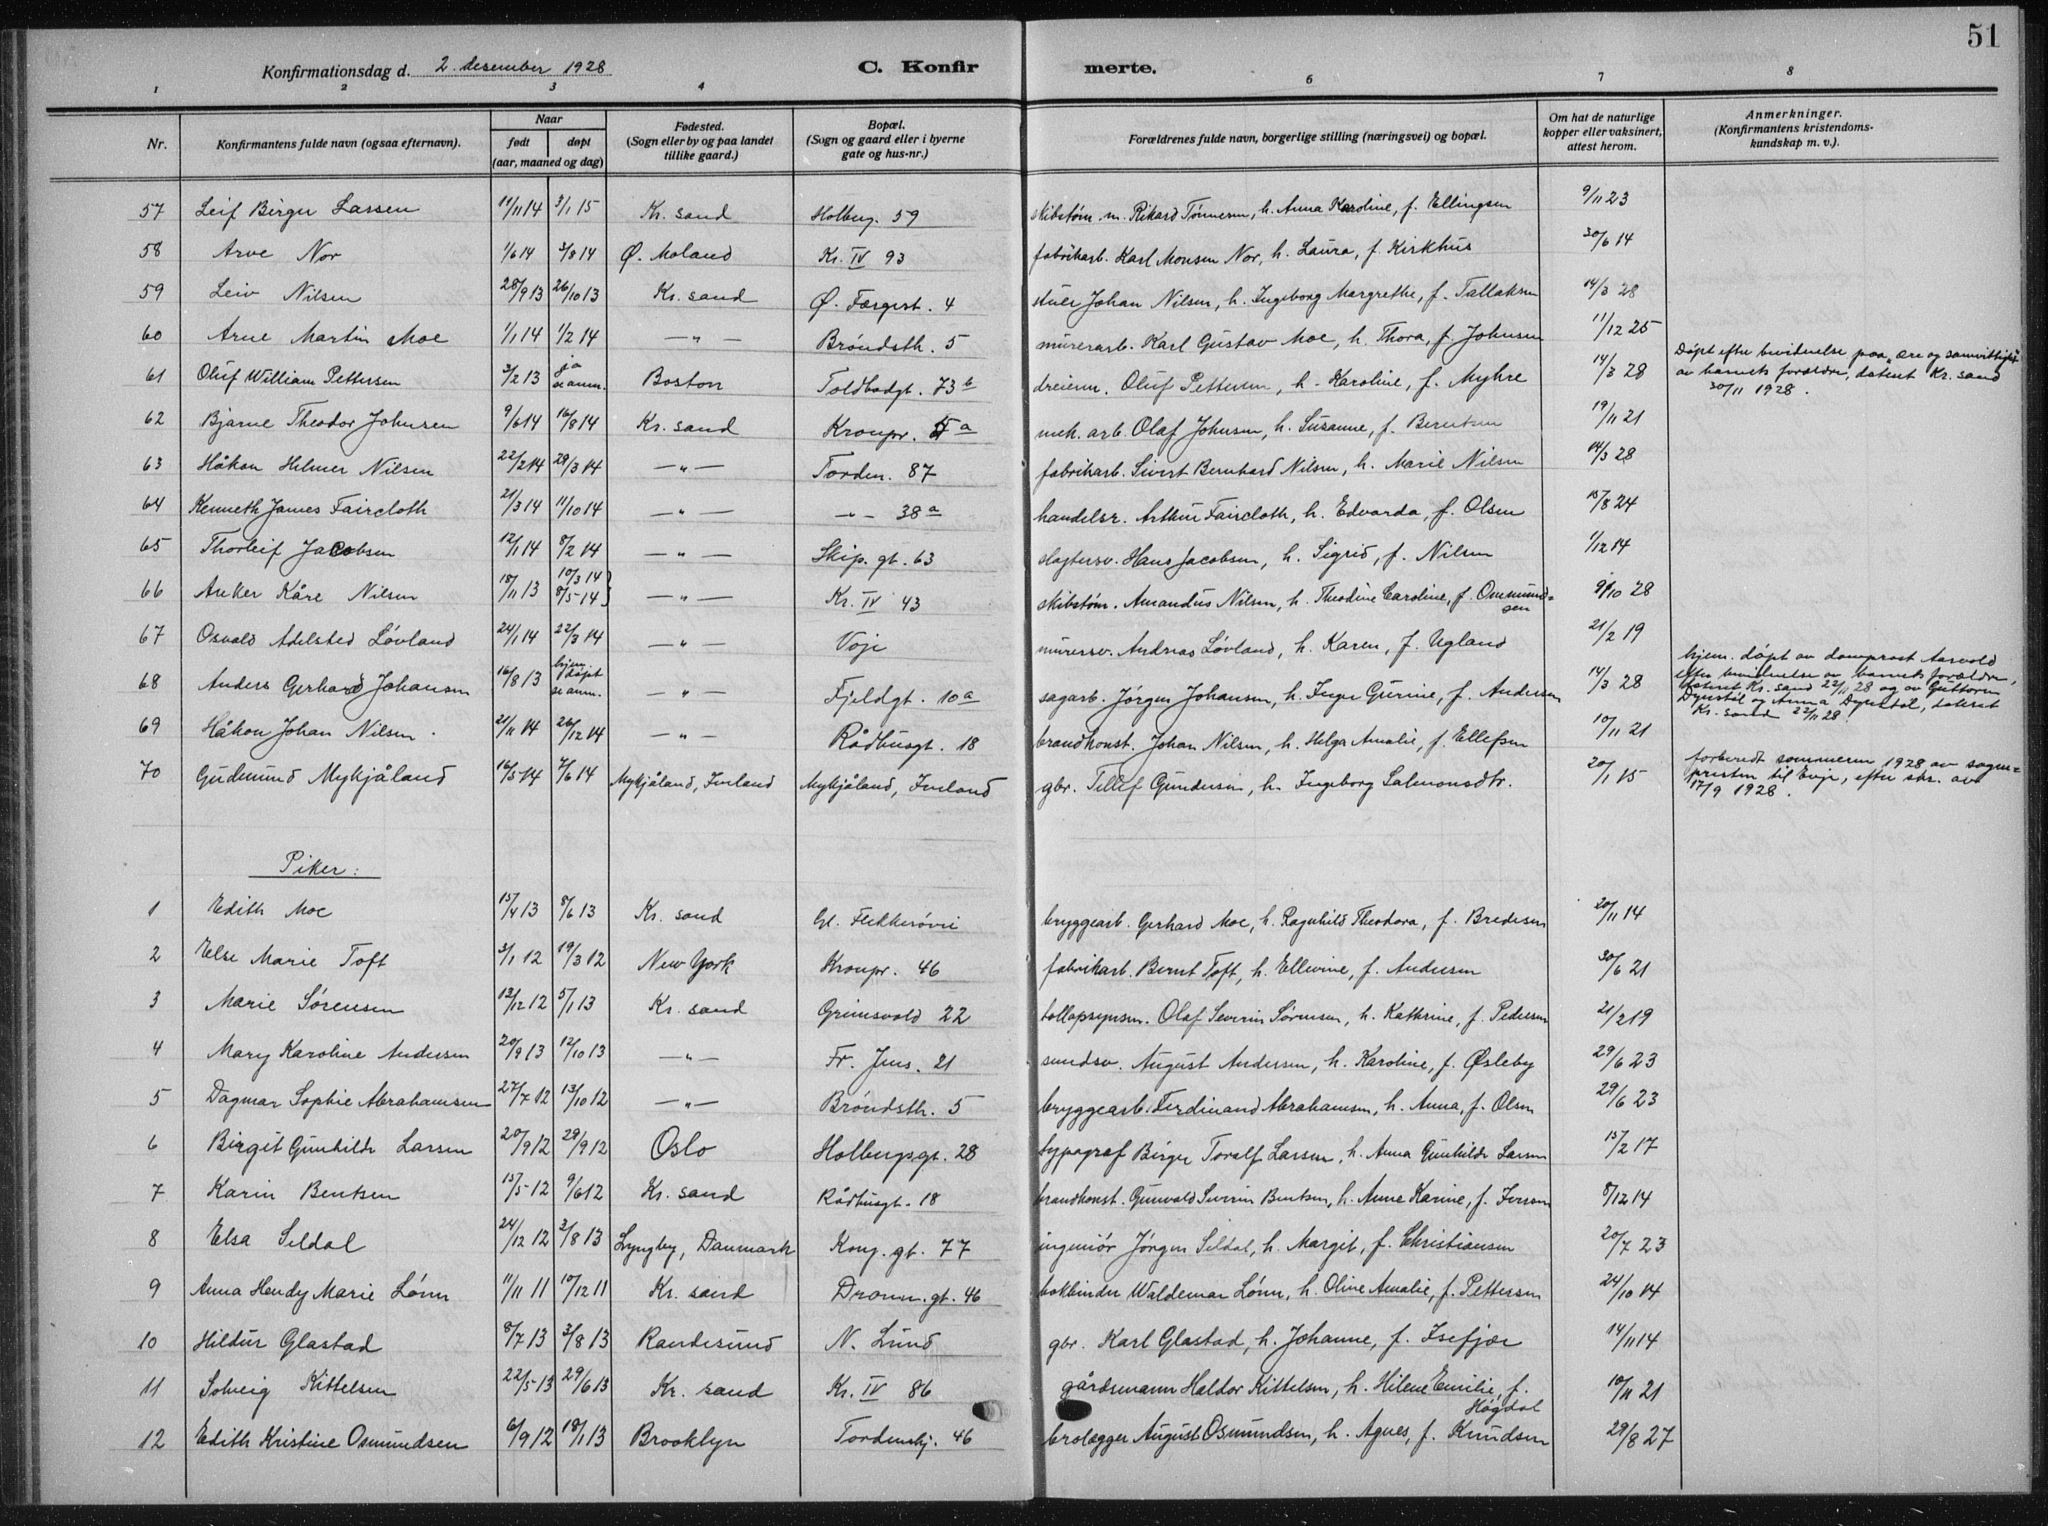 51
Konfirmationsdag d. 2. desember 1928 C. Konfir merte.
1 2 3 4 5 6 7 8
Nr. Konfirmantens fulde navn (ogsaa efternavn). Naar født døpt (aar, maaned og dag) Fødested. (Sogn eller by og paa landet tillike gaard.) Bopæl. (Sogn og gaard eller i byerne gate og hus-nr.) Forældrenes fulde navn, borgerlige stilling (næringsvei) og bopæl. Om hat de naturlige kopper eller vaksinert, attest herom. Anmerkninger. (Konfirmantens kristendoms-kundskap m. v.).
57 Leif Birger Larsen 11/11 14 3/1 15 Kr. sand Holberg. 59 skibstøm. m. Rikard Tønnesen, h. Anna Karoline, f. Ellingsen 9/11 23
58 Arve Nor 1/6 14 3/8 14 Ø. Moland Kr. IV 93 fabrikarb. Karl Monsen Nor, h. Laura, f. Kirkhus 30/6 14
59 Leiv Nilsen 28/9 13 26/10 13 Kr. sand Ø. Færgest. 4 stuer Johan Nilsen, h. Ingeborg Margrethe, f. Tallaksen 14/3 28
60 Arne Martin Moe 1/1 14 1/2 14 — " — Bróndsth. 5 murerarb. Karl Gustav Moe, h. Thora, f. Johnsen 11/12 25
61 Oluf William Pettersen 3/2 13 ja se anm. Boston Toldbodgt. 73 b dreierm. Oluf Pettersen, h. Karoline, f. Myhre 14/3 28 Døpt efter bevidnelse paa ære og samvittighet av barnets forældre, datert Kr. sand 30/11 1928.
62 Bjarne Theodor Johnsen 9/6 14 16/8 14 Kr. sand Kronpr. a mek. arb. Olaf Johnsen, h. Susanne, f. Berntsen 19/11 21
63 Håkon Helmer Nilsen 22/2 14 29/3 14 — " — Torden. 87 fabrikarb. Sivert Bernhard Nilsen, h. Marie Nilsen 14/3 28
64 Kenneth James Faircloth 21/3 14 11/10 14 — " — — " — 38 a handelsr. Arthur Faircloth, h. Edvarda, f. Olsen 15/8 24
65 Thorleif Jacobsen 12/1 14 8/2 14 — " — Skip. gt. 63 slagtersv. Hans Jacobsen, h. Sigrid, f. Nilsen 1/12 14
66 Anker Kåre Nilsen 18/11 13 10/3 14 8/5 14 — " — Kr. IV 43 skibstøm. Amandus Nilsen, h. Theodine Caroline, f. Ommundsen 9/10 28
67 Osvald Adelsted Lóvland 24/1 14 22/3 14 — " — Voje murersv. Andreas Lóvland, h. Karen, f. Ugland 21/2 19
68 Anders Gerhard Johansen 16/8 13 hjem døpt se anm. — " — Fjeldgt. 10 a sagarb. Jørgen Johansen, h. Inger Gurine, f. Andersen 14/3 28 hjem. døpt av domprost Aarvold efter bevidnelse av barnets forældre, datert Kr. sand 22/11 28 og av Guttorm Dynstøl og Anna Dynstøl, datert Kr. sand 22/11 28.
69 Håkon Johan Nilsen 21/11 14 26/12 14 — " — Rådhusgt. 18 brandkonst. Johan Nilsen, h. Helga Amalie, f. Ellefsen 10/11 21
70 Gudmund Mykjåland 16/5 14 7/6 14 Mykjåland, Iveland Mykjåland, Iveland gbr. Tellef Gundersen, h. Ingeborg Salmonsdtr. 20/1 15 forberedt sommeren 1928 av sogne-presten til Evje, efter skr. av 17/9 1928.
Piker:
1 Edith Moe 15/4 13 8/6 13 Kr. sand Gl. Flekkerøvei bryggearb. Gerhard Moe, h. Ragnhild Theodora, f. Bredesen 20/11 14
2 Else Marie Toft 3/1 12 19/3 12 New York Kronpr. 46 fabrikarb. Bernt Toft, h. Ellevine, f. Andersen 30/6 21
3 Marie Sørensen 13/12 12 5/1 13 Kr. sand Grimsvold 22 tollopsynsm. Olaf Severin Sørensen, h. Kathrine, f. Pedersen 21/2 19
4 Mary Karoline Andersen 20/9 13 12/10 13 — " — Fr. Jens. 21 sundsv. August Andersen, h. Karoline, f. Øsleby 29/6 23
5 Dagmar Sophie Abrahamsen 27/7 12 13/10 12 — " — Bróndsth. 5 bryggearb. Ferdinand Abrahamsen, h. Anna, f. Olsen 29/6 23
6 Birgit Gunhilde Larsen 20/9 12 29/9 12 Oslo Holbergsgt. 28 typograf Birger Toralf Larsen, h. Anna Gunhilde Larsen 15/2 17
7 Karin Bentsen 15/5 12 9/6 12 Kr. sand Rådhusgt. 18 brandkonst. Gunvald Severin Bentsen, h. Anne Karine, f. Iversen 8/12 14
8 Elsa Seldal 24/12 12 3/8 13 Lyngby, Danmark Kong. gt. 77 ingeniór Jórgen Seldal, h. Margit, f. Christiansen 20/7 23
9 Anna Hendy Marie Lónn 11/11 11 10/12 11 Kr. sand Dronn. gt. 46 bokbinder Waldemar Lónn, h. Oline Amalie, f. Pettersen 24/10 14
10 Hildur Glastad 8/7 13 3/8 13 Randesund N. Lund gbr. Karl Glastad, h. Johanne, f. Isefjær 14/11 14
11 Solveig Kittelsen 22/5 13 29/6 13 Kr. sand Kr. IV 86 gårdsmann Haldor Kittelsen, h. Hilene Emilie, f. Hógdal 10/11 21
12 Edith Kristine Osmundsen 6/9 12 18/1 13 Brooklyn Tordenskj. 46 brolægger August Osmundsen, h. Agnes, f. Knudsen 29/8 27